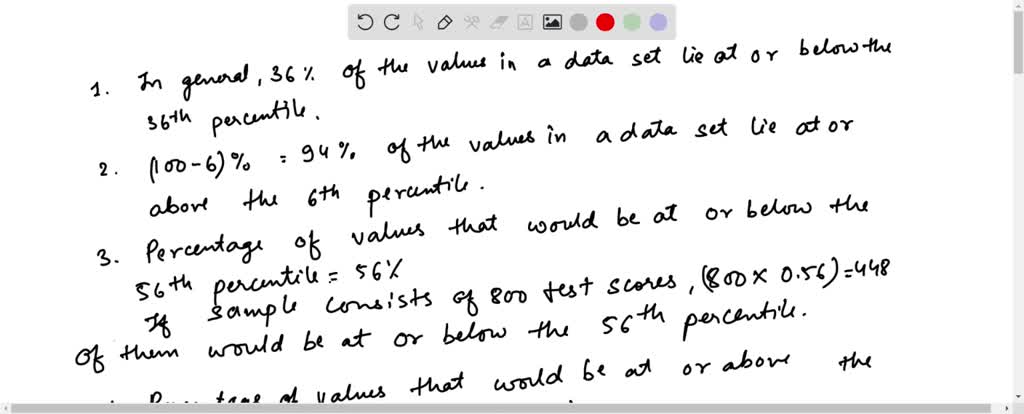 1. In general, 36% of the values in a data set lie at or below the
36th percentile.
2. (100-6)% = 94% of the values in a data set lie at or
above the 6th percentile.
3. Percentage of values that would be at or below the
56th percentile = 56%
If sample consists of 800 test scores, (800 × 0.56)=448
of them would be at or below the 56th percentile.
of values that would be at or above the